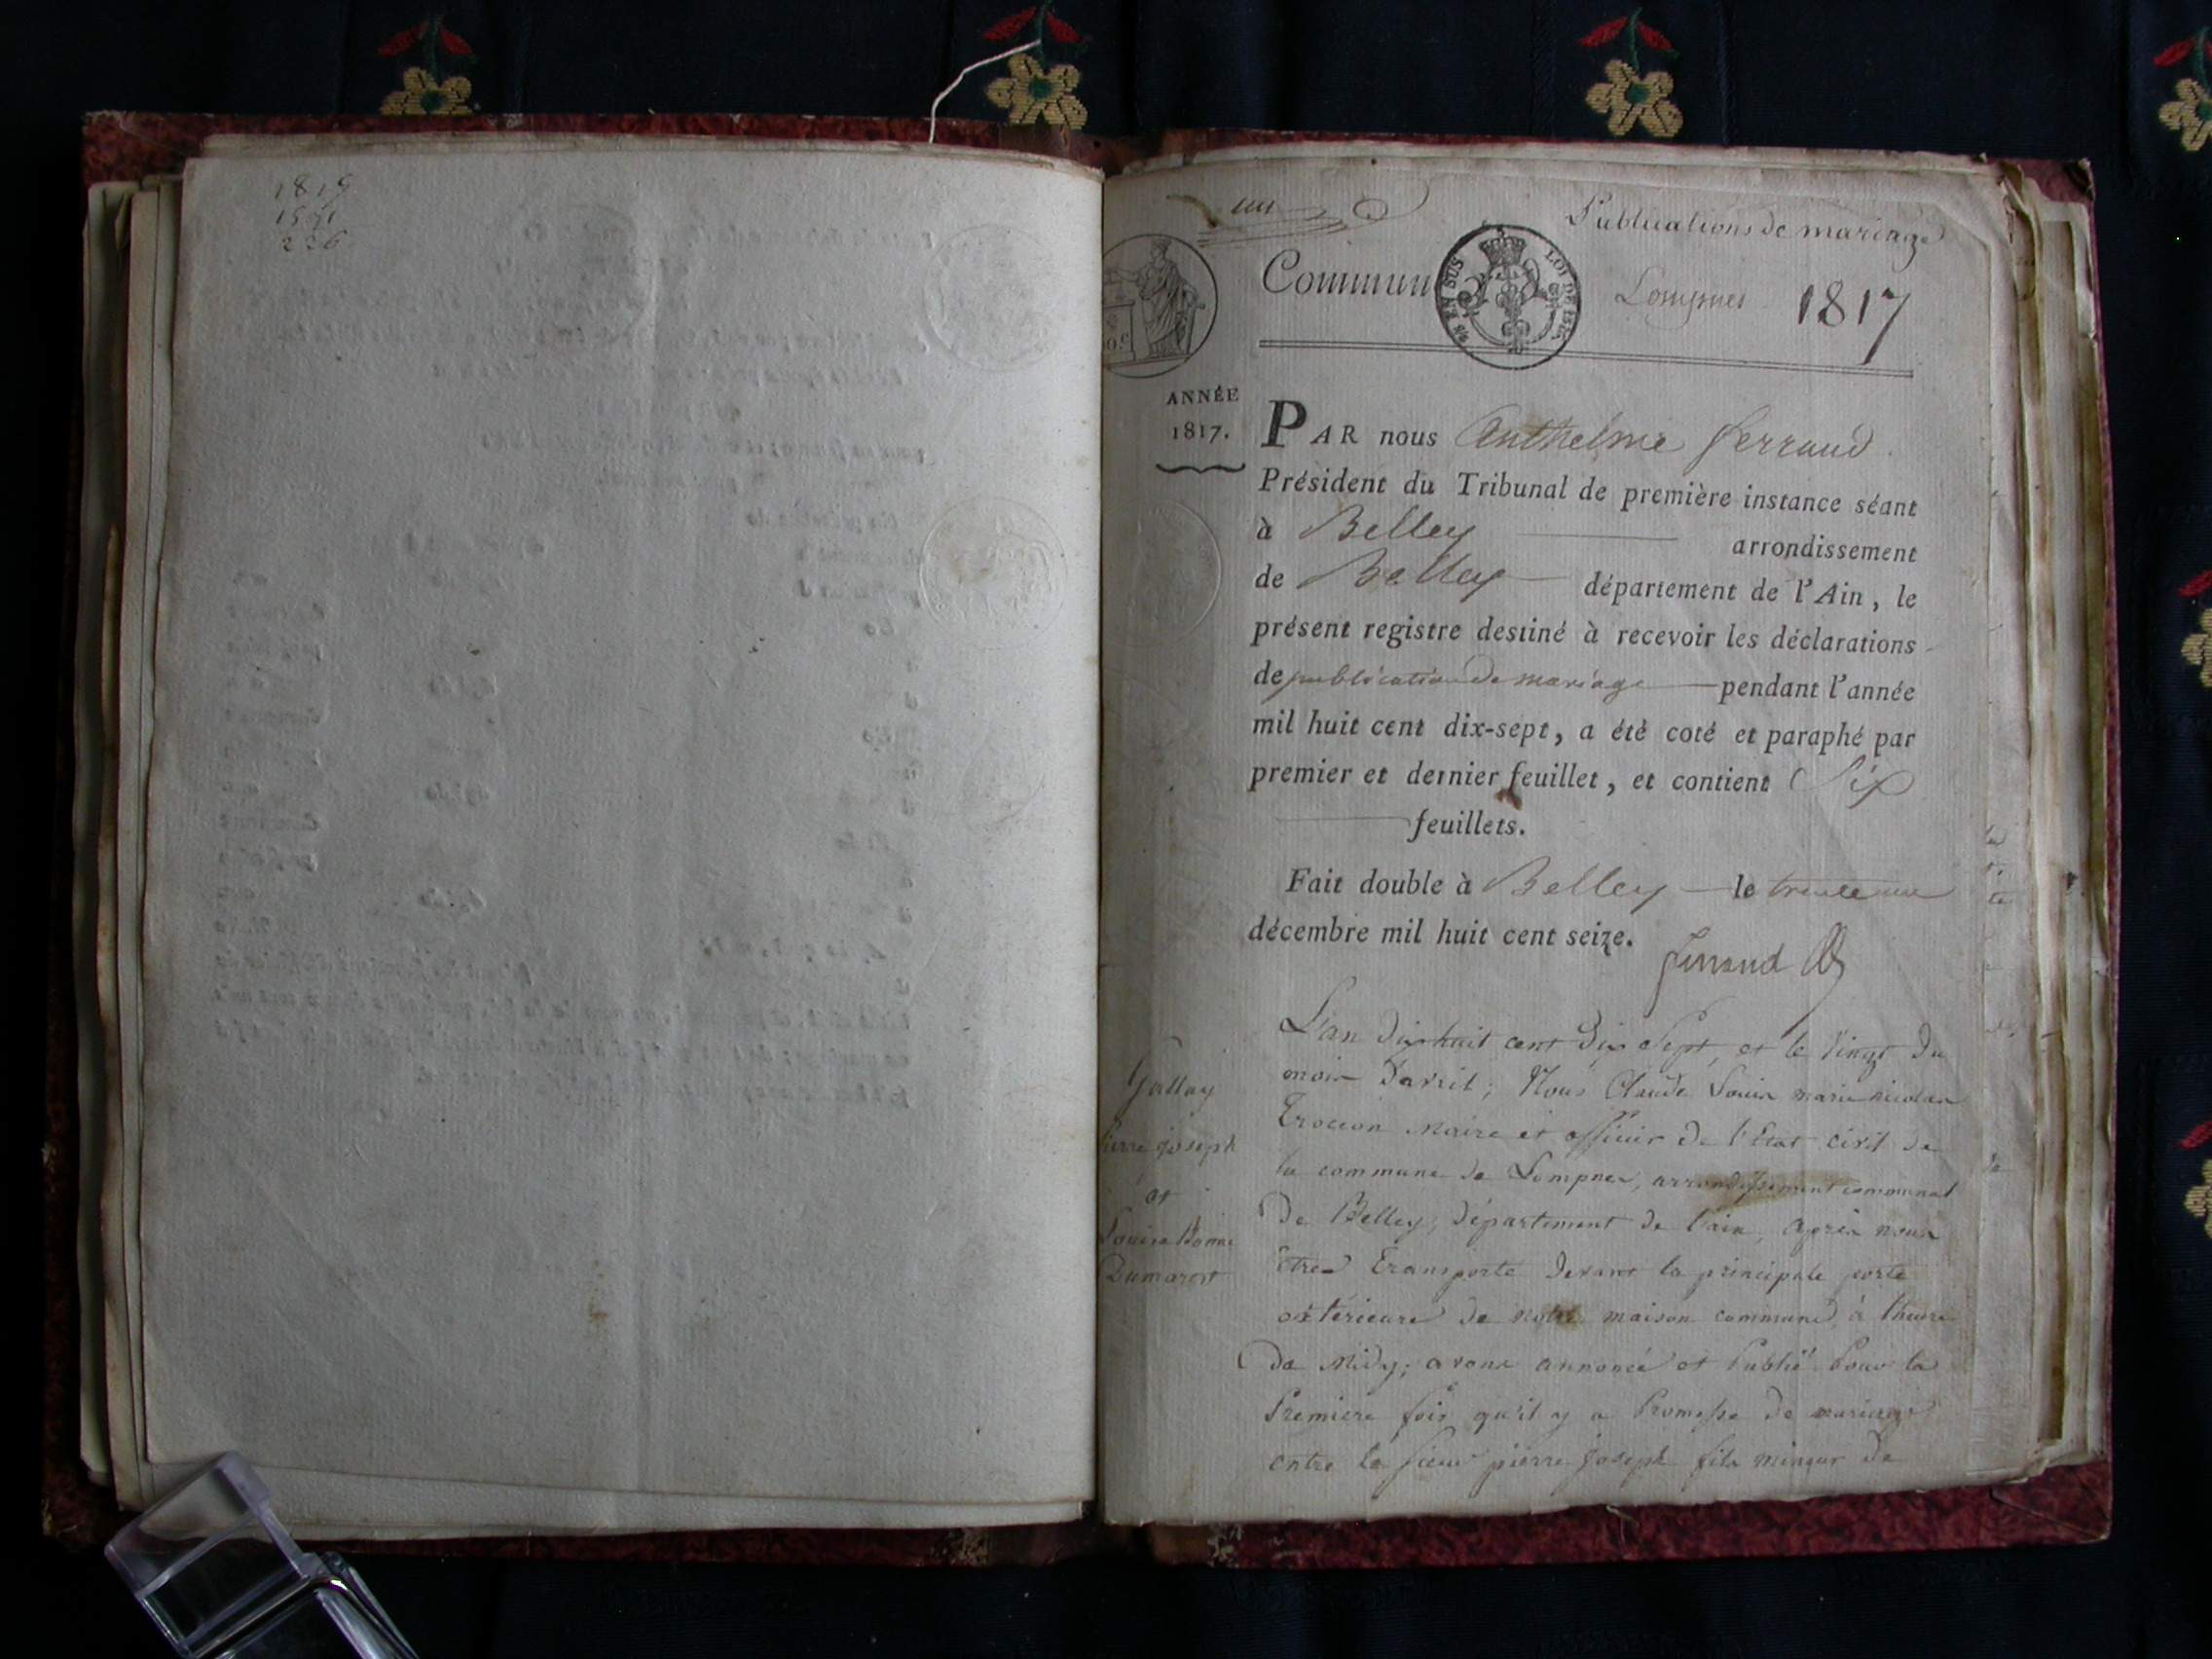 1819
226
un
Publications de mariage
Commun
Lompnes 1817
⅕ EN SUS
LOI DE 1816
ANNÉE
1817.
PAR nous Anthelme Ferrand
Président du Tribunal de première instance séant
à Belley arrondissement
de Belley département de l'Ain, le
présent registre destiné à recevoir les déclarations
de publication de mariage pendant l'année
mil huit cent dix-sept, a été coté et paraphé par
premier et dernier feuillet, et contient Six
feuillets.
Fait double à Belley le trente un
décembre mil huit cent seize.
Ferrand
Gallay
Pierre joseph
et
Louise Bonne
Dumarest
L'an dix huit cent Dix Sept, et le Vingt Du
mois Davril; Nous Claude Louis marie nicolas
Trocion Maire et officier De l'Etat civil de
la commune de Lompnes, arrondissement communal
De Belley, Département de l'ain, après nous
être Transporté Devant la principale porte
extérieure de notre maison commune, à l'heure
De Midy; avons annoncé et Publié Pour la
Premiere fois qu'il y a Promesse De mariage
entre le sieur pierre joseph fils mineur De